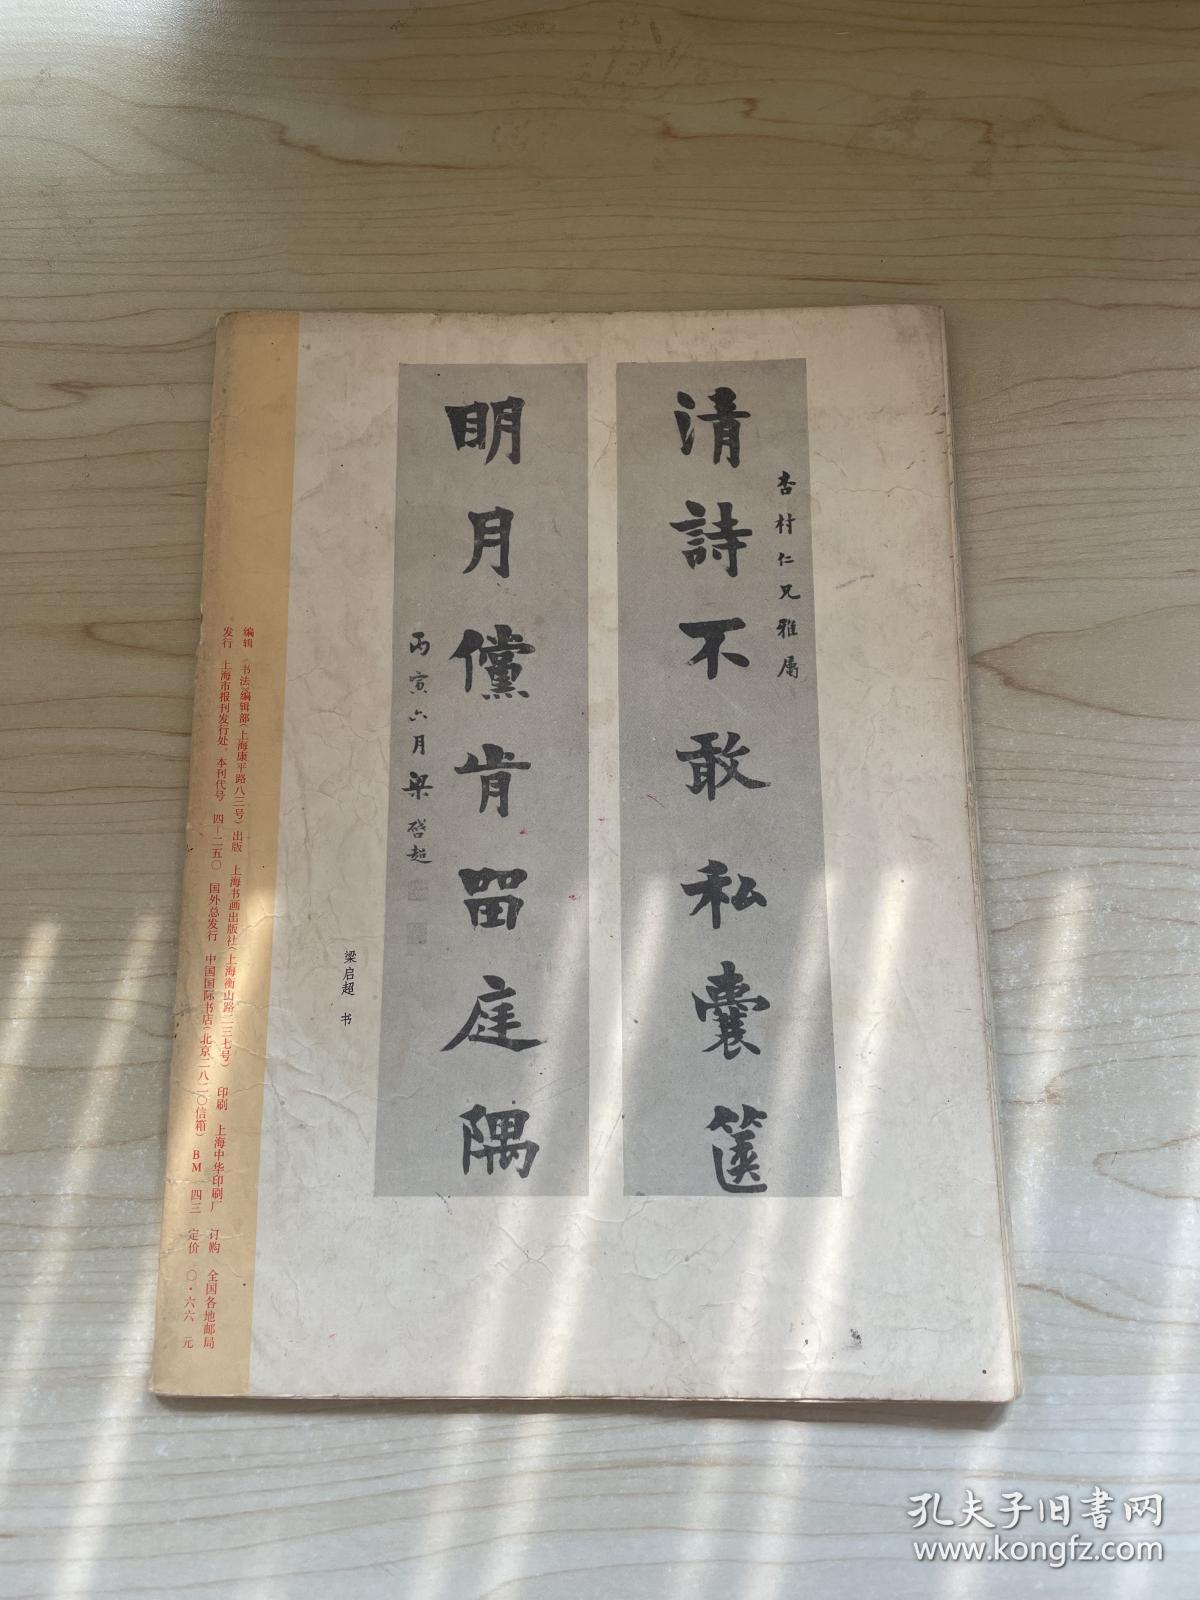 杏村仁兄雅属
清詩不敢私囊箧
明月儻肯畱庭隅
丙寅六月梁啓超
梁启超 书
编辑 《书法》编辑部(上海康平路八三号) 出版 上海书画出版社(上海衡山路二三七号) 印刷 上海中华印刷厂 订购 全国各地邮局
发行 上海市报刊发行处。本刊代号 四—二五〇 国外总发行 中国国际书店(北京二八二〇信箱) BM 四三 定价 〇·六六 元
孔夫子旧書网
www.kongfz.com